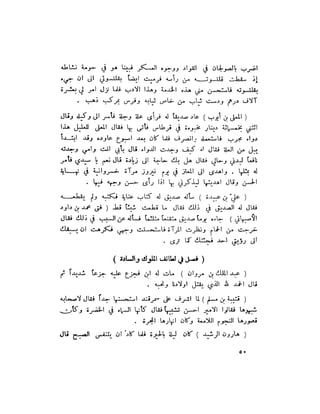 اضرب بالصولجان في القواد ووجوه العسكر فبينا هو في حومة نشاطه
إذ سقطت قلنسوتـــه من رأسه فرميت ايضاً بقلنسوتي الى ان جيء
بقلنسوته فاستحسن مني هذه الخدمة وهذا الادب فلما نزل امر لي بعشرة
آلاف درهم ودست ثياب من خاص ثيابه وفرس بمركب ذهب .
( المعلى بن أيوب ) عاد صديقاً له فرأى علة وجلة فأسر الى وكيله وقال
ائتني بخمسمائة دينار مخبوءة في قرطاس فأتى بها فقال المعلى للعليل هذا
دواء مجرب فاستعمله وانصرف فلما كان بعد اسبوع عاوده وقد ابتــدأ
يبل من العلة فقال له كيف وجدت الدواء قال بأبي انت وامي وجدته
نافعاً لبدني وحالي فقال هل بك حاجة الى زيادة قال نعم يا سيدي فأمر
له بمثلها . واهدى الى المعتز في يوم نيروز مرآة خسروانية في نهـــاية
الحسن وقال اهديتها ليذكرني بها اذا رأى حسن وجهه فيها .
( عليّ بن عبيدة ) سأله صديق له كتاب عناية فكتبه ولم يقطعـــه
فقال له الصديق في ذلك فقال ما قطعت شيئاً قط ( فتى محمد بن داود
الأصبهاني ) جاءه يوماً صديق متقنعاً متلثماً فسأله عن السبب في ذلك فقال
خرجت من الحمام ونظرت المرآة فاستحسنت وجهي فكرهت ان يسبقك
الى رؤيتي احد فجئتك كما ترى .
( فصل في لطائف الملوك والسادة )
( عبد الملك بن مروان ) مات له ابن فجزع عليه جزعاً شديداً ثم
قال الحمد لله الذي يقتل اولادنا ونحبه .
( قتيبة بن مسلم ) لما اشرف على سمرقند استحسنها جداً فقال لاصحابه
شبهوها فقالوا الامير احسن تشبيهاً فقال كأنها السماء في الخضرة وكأن
قصورها النجوم اللامعة وكأن انهارها المجرة .
( هارون الرشيد ) كان ليلة بالحيرة فلما كاد ان يتنفس الصبح قال
٥٠